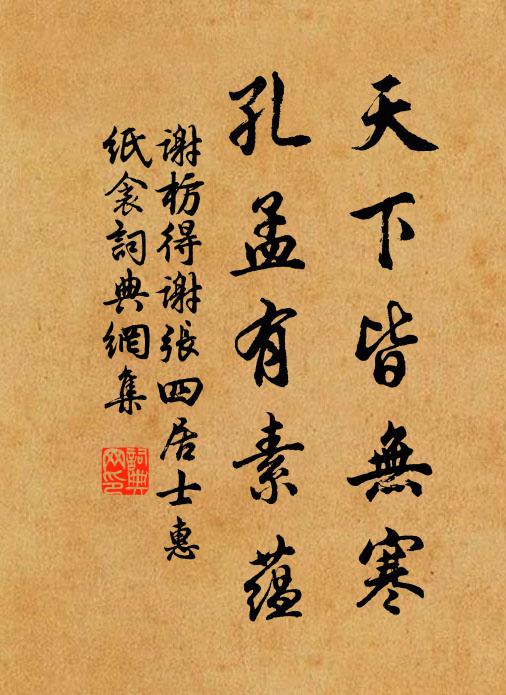 天下皆無寒
孔孟有素蘊
謝枋得謝張四居士惠
紙衾詞典網集
詞典網印